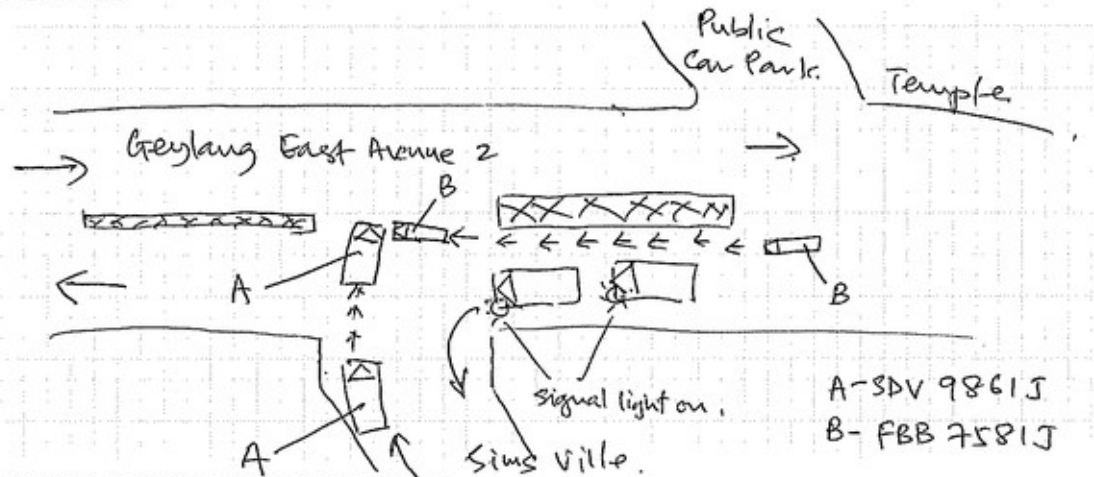 Public
Car Park.
Temple
Geylang East Avenue 2
B
A
B
A
signal light on.
Sims Ville.
A-SDV 9861J
B- FBB 7581J